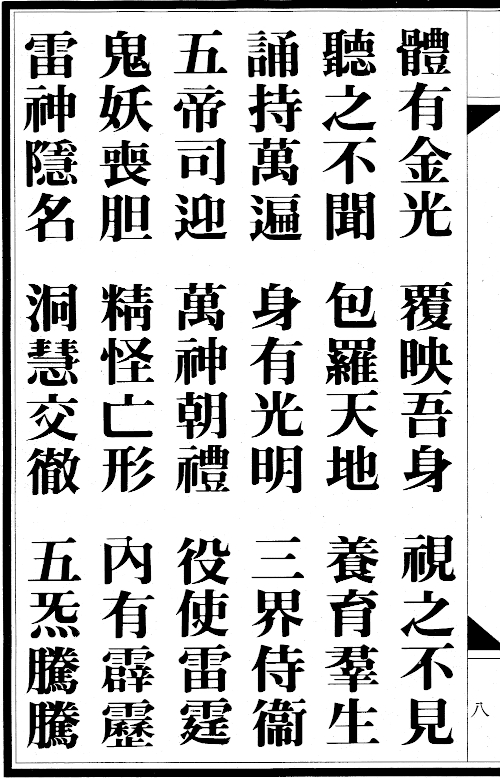 體有金光 覆映吾身 視之不見
聽之不聞 包羅天地 養育羣生
誦持萬遍 身有光明 三界侍衞
五帝司迎 萬神朝禮 役使雷霆
鬼妖喪胆 精怪亡形 內有霹靂
雷神隱名 洞慧交徹 五炁騰騰
八